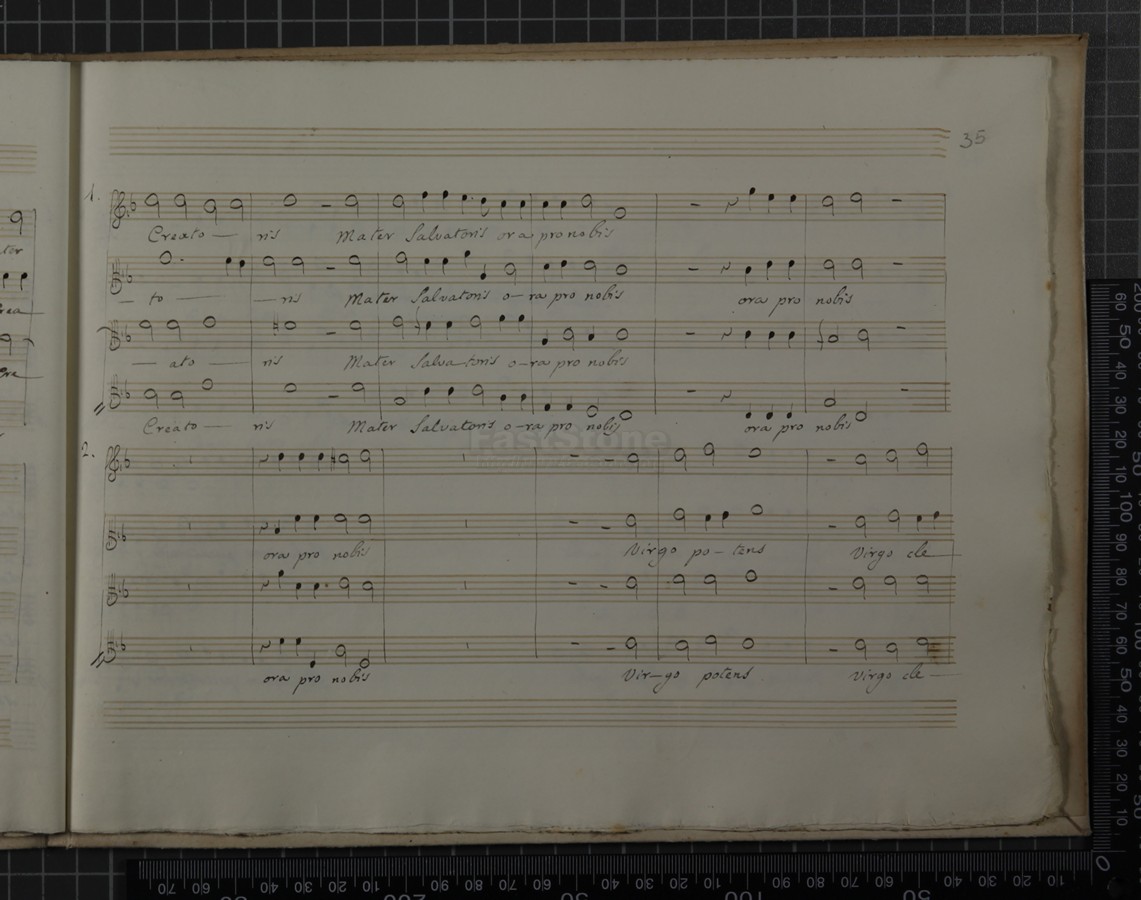 35
1.
Creato — ris Mater Salvatoris ora pro nobis
— to — — ris Mater Salvatoris o-ra pro nobis ora pro nobis
— ato — ris Mater Salva-toris o-ra pro nobis
Creato — ris Mater Salvatoris o-ra pro nobis ora pro nobis
2.
ora pro nobis Virgo po-tens Virgo cle
ora pro nobis Vir-go potens Virgo cle —
FastStone